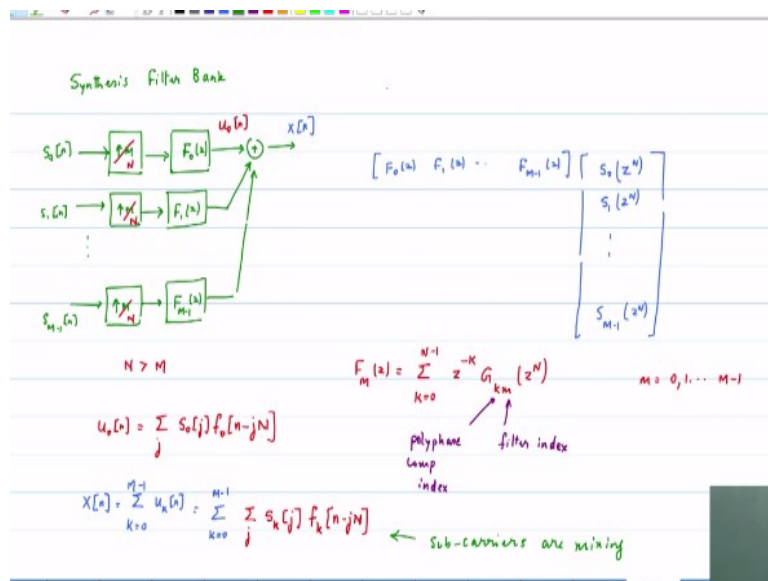 Synthesis Filter Bank
u₀[n]
x[n]
S₀[n] ↑M N F₀(z) +
S₁[n] ↑M N F₁(z)
⋮
S_{M-1}[n] ↑M N F_{M-1}(z)
[F₀(z) F₁(z) ·· F_{M-1}(z)] [S₀(z^N)
S₁(z^N)
⋮
S_{M-1}(z^N)]
N > M
F_m(z) = Σ_{k=0}^{N-1} z^{-k} G_{km}(z^N) m = 0,1... M-1
polyphase comp index
filter index
u₀[n] = Σ_j S₀[j] f₀[n-jN]
x[n] = Σ_{k=0}^{M-1} u_k[n] = Σ_{k=0}^{M-1} Σ_j S_k[j] f_k[n-jN] ← Sub-carriers are mixing